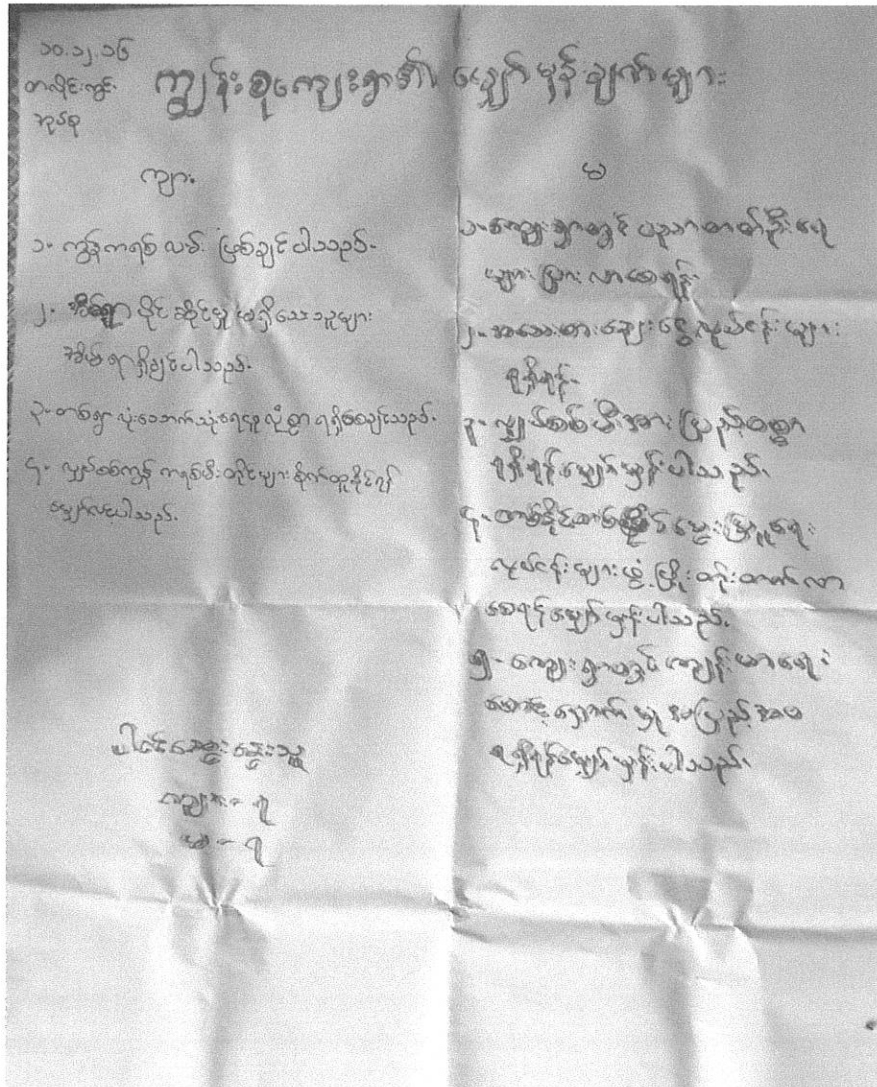 ၁၀.၁၂.၁၆
တလိုင်းကွင်း
အုပ်စု
ကျွန်းစုကျေးရွာ၏ မျှော်မှန်းချက်များ
ကျား
၁- ကွန်ကရစ် လမ်း ဖြစ်ချင်ပါသည်။
၂- အိမ်ရာ ပိုင်ဆိုင်မှု မရှိသော သူများ
အိမ်ရာရှိချင်ပါသည်။
၃- တစ်ရွာလုံးသောက်သုံးရေ လုံစွာ ရရှိစေချင်သည်။
၄- လျှပ်စစ်ကွန်ကရစ်မီးတိုင်များ စိုက်ထူနိုင်ရန်
မျှော်လင့်ပါသည်။
ပါဝင်ဆွေးနွေးသူ
ကျား - ၇
မ - ၇
မ
၁- ကျေးရွာတွင် ပညာတတ်ဦးရေ
များပြားလာစေရန်
၂- အသေးစားချေးငွေလုပ်ငန်းများ
ရရှိရန်
၃- လျှပ်စစ်မီးအား ပြည့်ဝစွာ
ရရှိရန်မျှော်မှန်းပါသည်။
၄- တစ်နိုင်တစ်ပိုင် မွေးမြူရေး
လုပ်ငန်းများဖွံ့ဖြိုးတိုးတက်လာ
စေရန်မျှော်မှန်းပါသည်။
၅- ကျေးရွာတွင် ကျန်းမာရေး
စောင့်ရှောက်မှု အပြည့်အဝ
ရရှိရန်မျှော်မှန်းပါသည်။